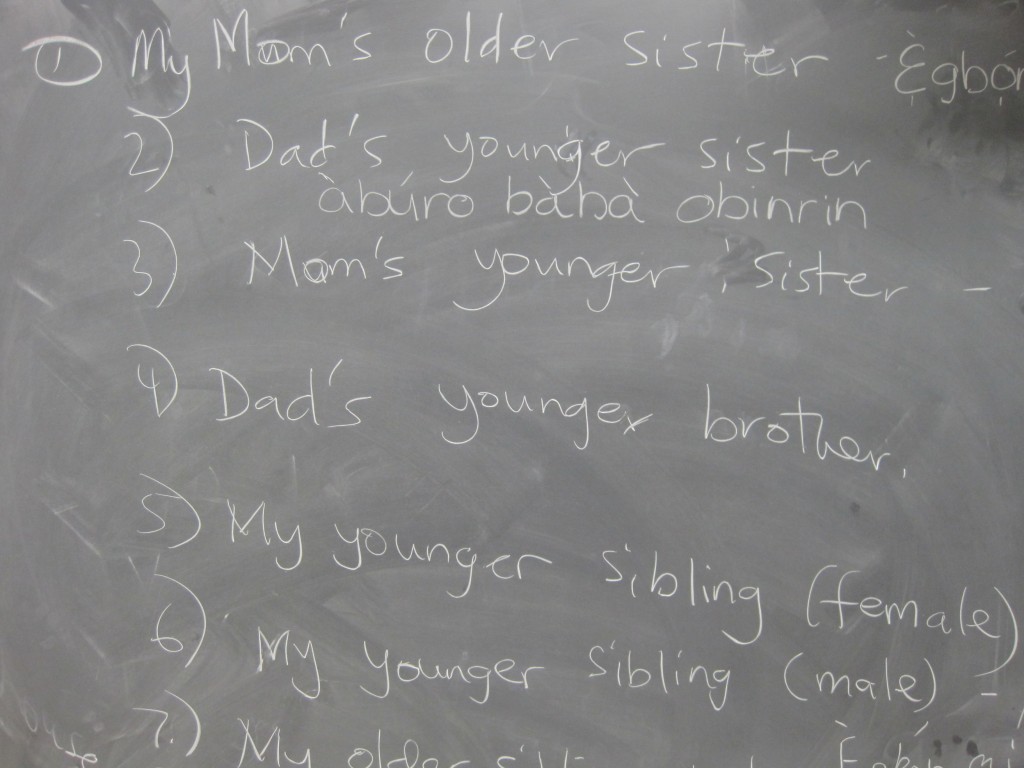 1) My Mom's older sister - Ẹ̀gbọ́n
2) Dad's younger sister
àbúrò bàbà obinrin
3) Mom's younger sister -
4) Dad's younger brother.
5) My younger sibling (female)
6) My younger sibling (male) -
7.) My older